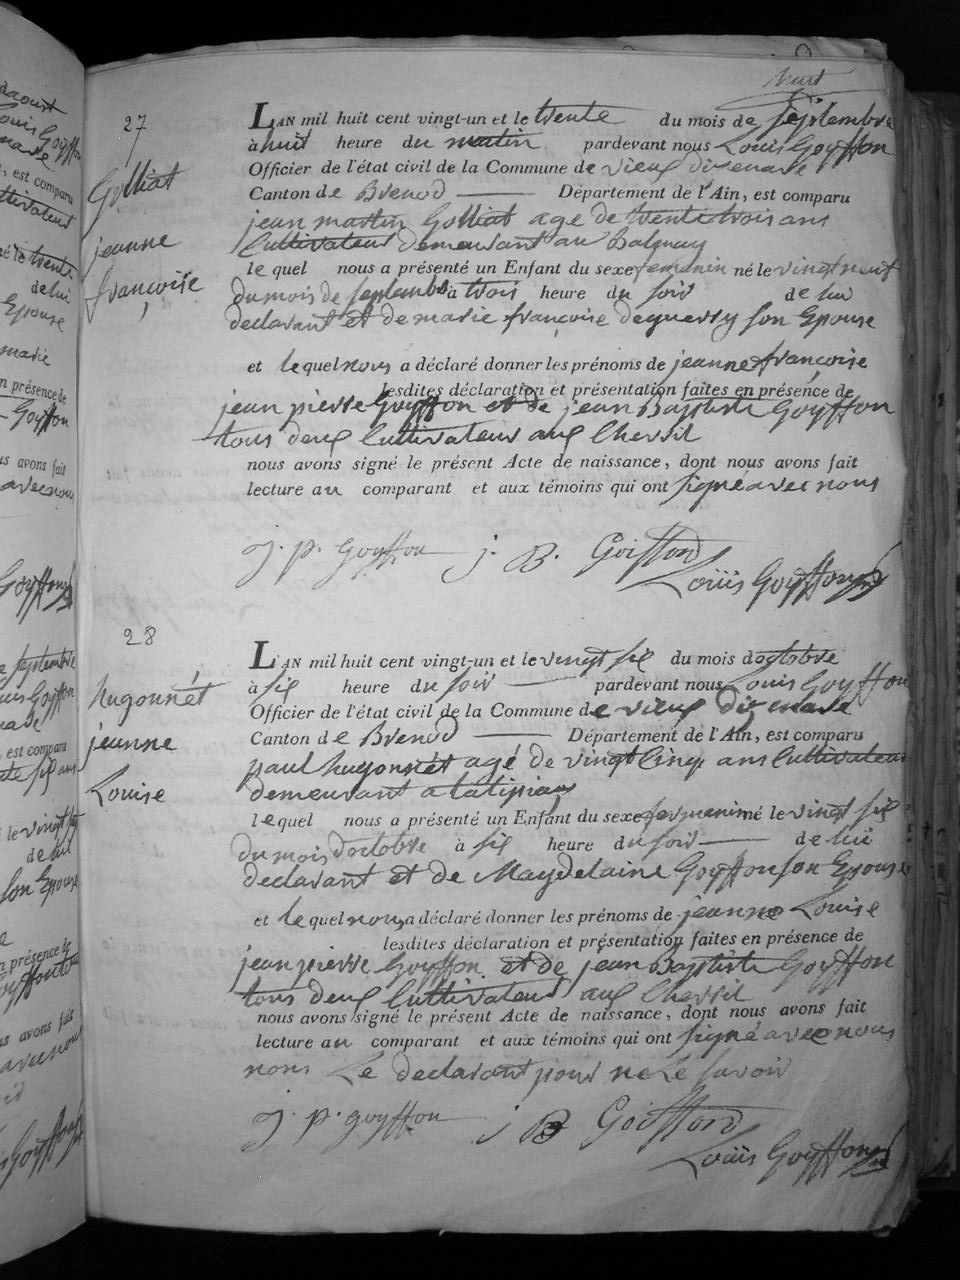 huit
27
Golliat
jeanne
françoise
LAN mil huit cent vingt-un et le trente du mois de septembre
à huit heure du matin pardevant nous Louis Goyffon
Officier de l'état civil de la Commune de vieux dizenave
Canton de Brenod Département de l'Ain, est comparu
jean martin Golliat age de trente trois ans
Cultivateur demeurant au Balmay
le quel nous a présenté un Enfant du sexe femenin né le vingt neuf
du mois de septembre à trois heure du soir de lui
declarant et de marie françoise deguerry son Epouse
et le quel nous a déclaré donner les prénoms de jeanne françoise
lesdites déclaration et présentation faites en présence de
jean pierre Goyffon et de jean Baptiste Goyffon
tous deux Cultivateur aux Chevril
nous avons signé le présent Acte de naissance, dont nous avons fait
lecture au comparant et aux témoins qui ont signé avec nous
J. p. Goyffon j. B. Goiffon
Louis Goyffon
28
hugonnét
jeanne
Louise
L'AN mil huit cent vingt-un et le vingt six du mois doctobre
à six heure du soir pardevant nous Louis Goyffon
Officier de l'état civil de la Commune de vieux dizenave
Canton de Brenod Département de l'Ain, est comparu
paul hugonnét agé de vingt Cinq ans Cultivateur
demeurant a
le quel nous a présenté un Enfant du sexe femenim né le vingt six
du mois doctobre à six heure du soir de lui
declarant et de Maydelaine Goyffon son Epouse
et le quel nous a déclaré donner les prénoms de jeanne Louise
lesdites déclaration et présentation faites en présence de
jean pierre Goyffon et de jean Baptiste Goyffon
tous deux Cultivateur aux Chevril
nous avons signé le présent Acte de naissance, dont nous avons fait
lecture au comparant et aux témoins qui ont signé avec nous
nons Le declarant pour ne Le savoir
J. p. goyffon j B Goiffon
Louis Goyffon